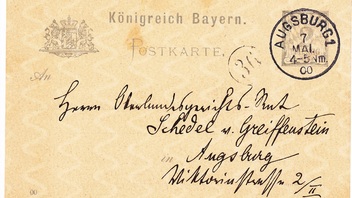 Königreich Bayern.
POSTKARTE.
AUGSBURG 1
7
MAI.
4-5 Nm.
00
36
An
Herrn Oberlandesgerichts-Rat
Schedel v. Greiffenstein
in
Augsburg
Viktoriastrasse 2/II
00